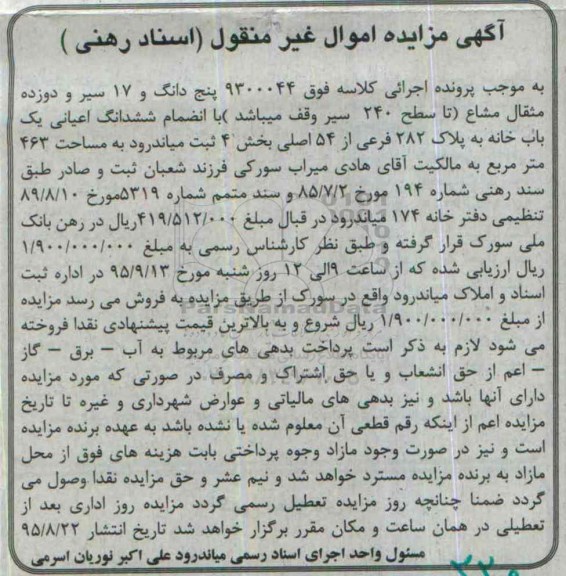 آگهی مزایده اموال غیر منقول (اسناد رهنی )
به موجب پرونده اجرائی کلاسه فوق ۹۳۰۰۰۴۴ پنج دانگ و ۱۷ سیر و دوزده
مثقال مشاع (تا سطح ۲۴۰ سیر وقف میباشد )با انضمام ششدانگ اعیانی یک
باب خانه به پلاک ۲۸۲ فرعی از ۵۴ اصلی بخش ۴ ثبت میاندرود به مساحت ۴۶۳
متر مربع به مالکیت آقای هادی میراب سورکی فرزند شعبان ثبت و صادر طبق
سند رهنی شماره ۱۹۴ مورخ ۸۵/۷/۲ و سند متمم شماره ۵۳۱۹مورخ ۸۹/۸/۱۰
تنظیمی دفتر خانه ۱۷۴ میاندرود در قبال مبلغ ۴۱۹/۵۱۲/۰۰۰ریال در رهن بانک
ملی سورک قرار گرفته و طبق نظر کارشناس رسمی به مبلغ ۱/۹۰۰/۰۰۰/۰۰۰
ریال ارزیابی شده که از ساعت ۹الی ۱۲ روز شنبه مورخ ۹۵/۹/۱۳ در اداره ثبت
اسناد و املاک میاندرود واقع در سورک از طریق مزایده به فروش می رسد مزایده
از مبلغ ۱/۹۰۰/۰۰۰/۰۰۰ ریال شروع و به بالاترین قیمت پیشنهادی نقدا فروخته
می شود لازم به ذکر است پرداخت بدهی های مربوط به آب – برق – گاز
– اعم از حق انشعاب و یا حق اشتراک و مصرف در صورتی که مورد مزایده
دارای آنها باشد و نیز بدهی های مالیاتی و عوارض شهرداری و غیره تا تاریخ
مزایده اعم از اینکه رقم قطعی آن معلوم شده یا نشده باشد به عهده برنده مزایده
است و نیز در صورت وجود مازاد وجوه پرداختی بابت هزینه های فوق از محل
مازاد به برنده مزایده مسترد خواهد شد و نیم عشر و حق مزایده نقدا وصول می
گردد ضمنا چنانچه روز مزایده تعطیل رسمی گردد مزایده روز اداری بعد از
تعطیلی در همان ساعت و مکان مقرر برگزار خواهد شد تاریخ انتشار ۹۵/۸/۲۲
مسئول واحد اجرای اسناد رسمی میاندرود علی اکبر نوریان اسرمی
ParsNamadData